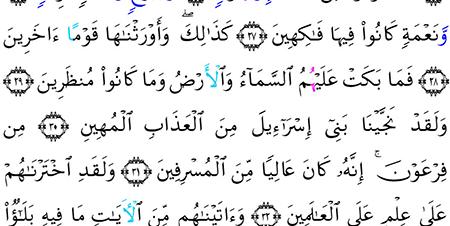 وَنَعْمَةٖ كَانُواْ فِيهَا فَٰكِهِينَ ٢٧ كَذَٰلِكَۖ وَأَوْرَثْنَٰهَا قَوْمًا ءَاخَرِينَ
٢٨ فَمَا بَكَتْ عَلَيْهِمُ ٱلسَّمَآءُ وَٱلْأَرْضُ وَمَا كَانُواْ مُنظَرِينَ ٢٩
وَلَقَدْ نَجَّيْنَا بَنِيٓ إِسْرَآءِيلَ مِنَ ٱلْعَذَابِ ٱلْمُهِينِ ٣٠ مِن
فِرْعَوْنَۚ إِنَّهُۥ كَانَ عَالِيٗا مِّنَ ٱلْمُسْرِفِينَ ٣١ وَلَقَدِ ٱخْتَرْنَٰهُمْ
عَلَىٰ عِلْمٍ عَلَى ٱلْعَٰلَمِينَ ٣٢ وَءَاتَيْنَٰهُم مِّنَ ٱلْأٓيَٰتِ مَا فِيهِ بَلَٰٓؤٌاْ